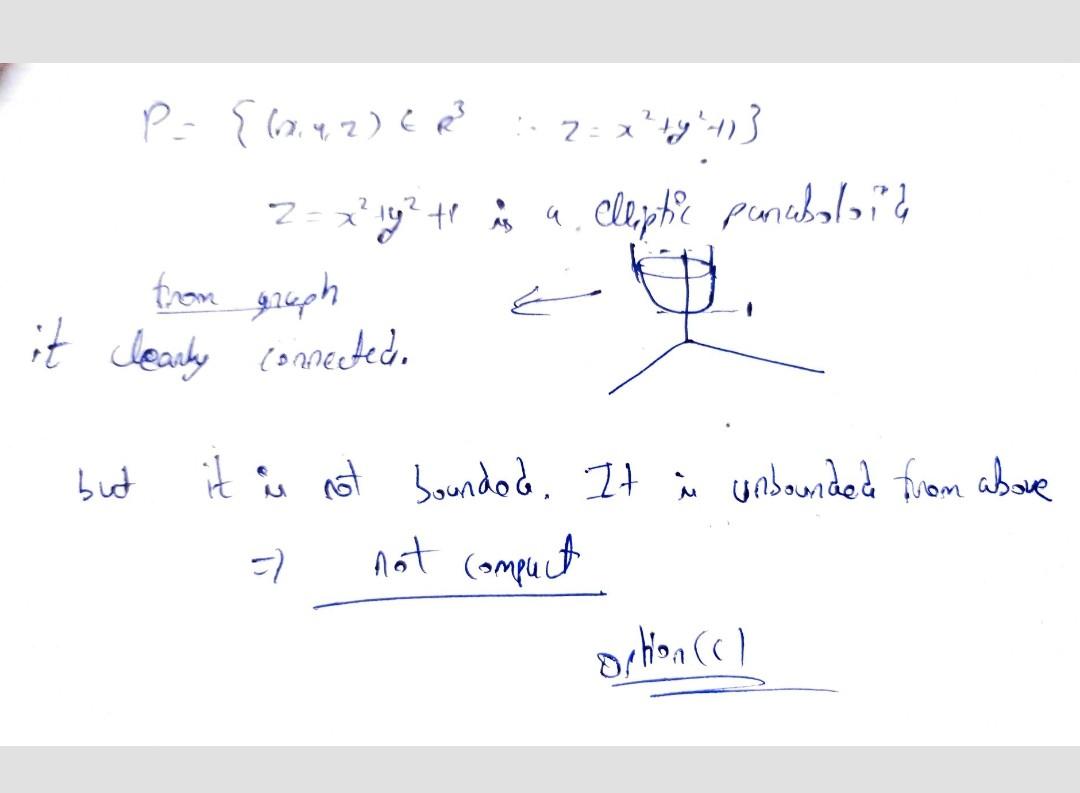 P = { (x, y, z) ∈ R³ : z = x² + y² + 1 }
z = x² + y² + 1 is a elliptic paraboloid
from graph
1
it clearly connected.
but it is not bounded. It is unbounded from above
=) not compact
option (c)